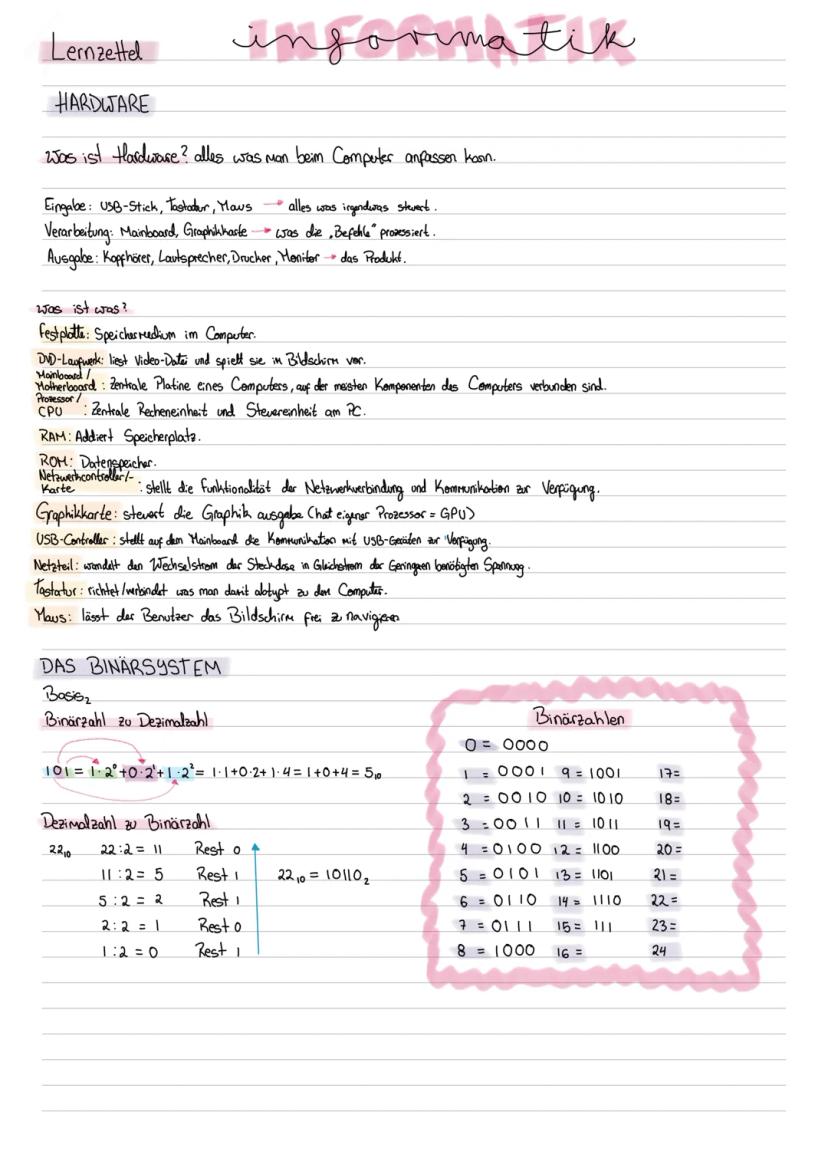 Lernzettel
INFORMATIK
informatik
HARDWARE
Was ist Hardware? alles was man beim Computer anpassen kann.
Eingabe: USB-Stick, Tastatur, Maus → alles was irgendwas steuert.
Verarbeitung: Mainboard, Graphikkarte → was die „Befehle" prozessiert.
Ausgabe: Kopfhörer, Lautsprecher, Drucker, Monitor → das Produkt.
Was ist was?
Festplatte: Speichermedium im Computer.
DVD-Laufwerk: liest Video-Datei und spielt sie im Bildschirm vor.
Mainboard /
Motherboard : Zentrale Platine eines Computers, auf der meisten Komponenten des Computers verbunden sind.
Prozessor /
CPU : Zentrale Recheneinheit und Steuereinheit am PC.
RAM: Addiert Speicherplatz.
ROM: Datenspeicher.
Netzwerkcontroller/-
Karte : stellt die Funktionalität der Netzwerkverbindung und Kommunikation zur Verfügung.
Graphikkarte: steuert die Graphik ausgabe (hat eigener Prozessor = GPU)
USB-Controller : stellt auf dem Mainboard die Kommunikation mit USB-Geräten zur Verfügung.
Netzteil: wandelt den Wechselstrom der Steckdose in Gleichstrom der Geringeren benötigten Spannung.
Tastatur : richtet/verbindet was man damit abtypt zu dem Computer.
Maus: lässt der Benutzer das Bildschirm frei zu navigieren
DAS BINÄRSYSTEM
Basis₂
Binärzahl zu Dezimalzahl
101 = 1·2⁰+0·2¹+1·2² = 1·1+0·2+1·4 = 1+0+4 = 5₁₀
Dezimalzahl zu Binärzahl
22₁₀ 22:2 = 11 Rest 0
11:2 = 5 Rest 1 22₁₀ = 10110₂
5:2 = 2 Rest 1
2:2 = 1 Rest 0
1:2 = 0 Rest 1
Binärzahlen
0 = 0000
1 = 0001 9 = 1001 17=
2 = 0010 10 = 1010 18=
3 = 0011 11 = 1011 19=
4 = 0100 12 = 1100 20=
5 = 0101 13= 1101 21=
6 = 0110 14 = 1110 22=
7 = 0111 15= 111 23=
8 = 1000 16 = 24